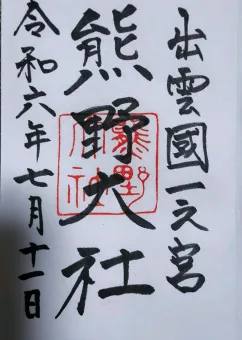 出雲國一之宮
熊野大社
熊野大社
令和六年七月十一日